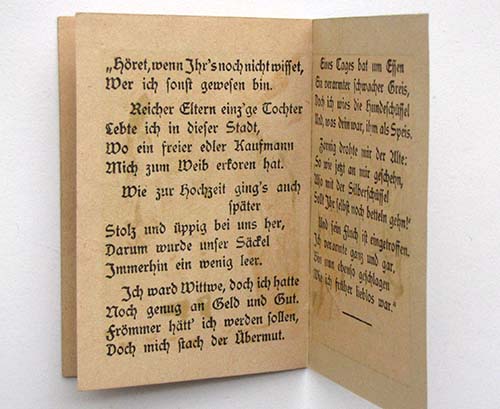 „Höret, wenn Ihr's noch nicht wisset,
Wer ich sonst gewesen bin.
Reicher Eltern einz'ge Tochter
Lebte ich in dieser Stadt,
Wo ein freier edler Kaufmann
Mich zum Weib erkoren hat.
Wie zur Hochzeit ging's auch
später
Stolz und üppig bei uns her,
Darum wurde unser Säckel
Immerhin ein wenig leer.
Ich ward Wittwe, doch ich hatte
Noch genug an Geld und Gut.
Frömmer hätt' ich werden sollen,
Doch mich stach der Übermut.
Eines Tages bat um Essen
Ein verarmter schwacher Greis,
Doch ich wies die Hundeschüssel
Und, was drin war, ihm als Speis.
Zornig drohte mir der Alte:
So wie jetzt an mir geschehn,
Wo mit der Silberschüssel
Sollt Ihr selbst noch betteln gehn!'
Und sein Fluch ist eingetroffen.
Ich verarmte ganz und gar,
Bin nun ebenso geschlagen
Wie ich früher lieblos war."